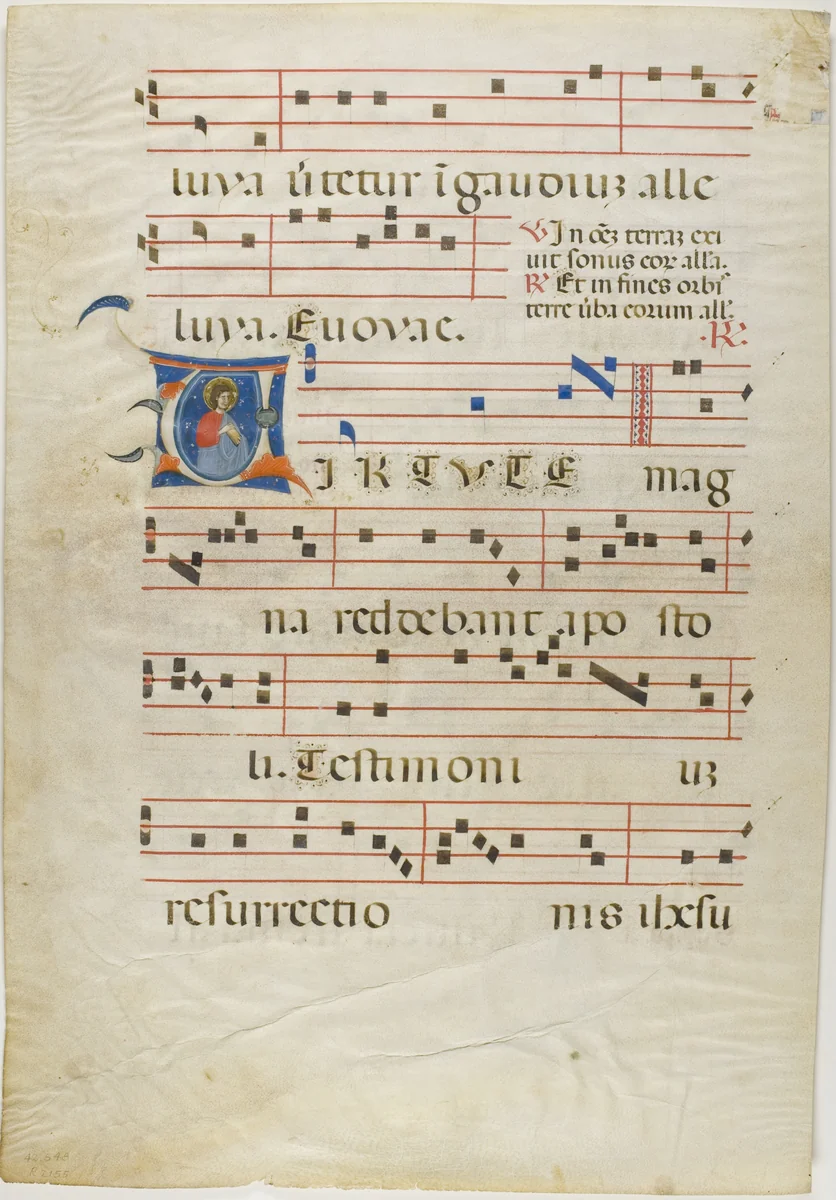 luya v̄tetur ī gaudiuꝫ alle
luya. Euovae.
℣ In oēꝫ terraꝫ exi
uit sonus eoꝝ all'a.
℟ Et in fines orbis
terre ūba eorum all'.
·℟·
VIRTVTE mag
na reddebant aposto
li. Testimoni uꝫ
resurrectio nis ihesu